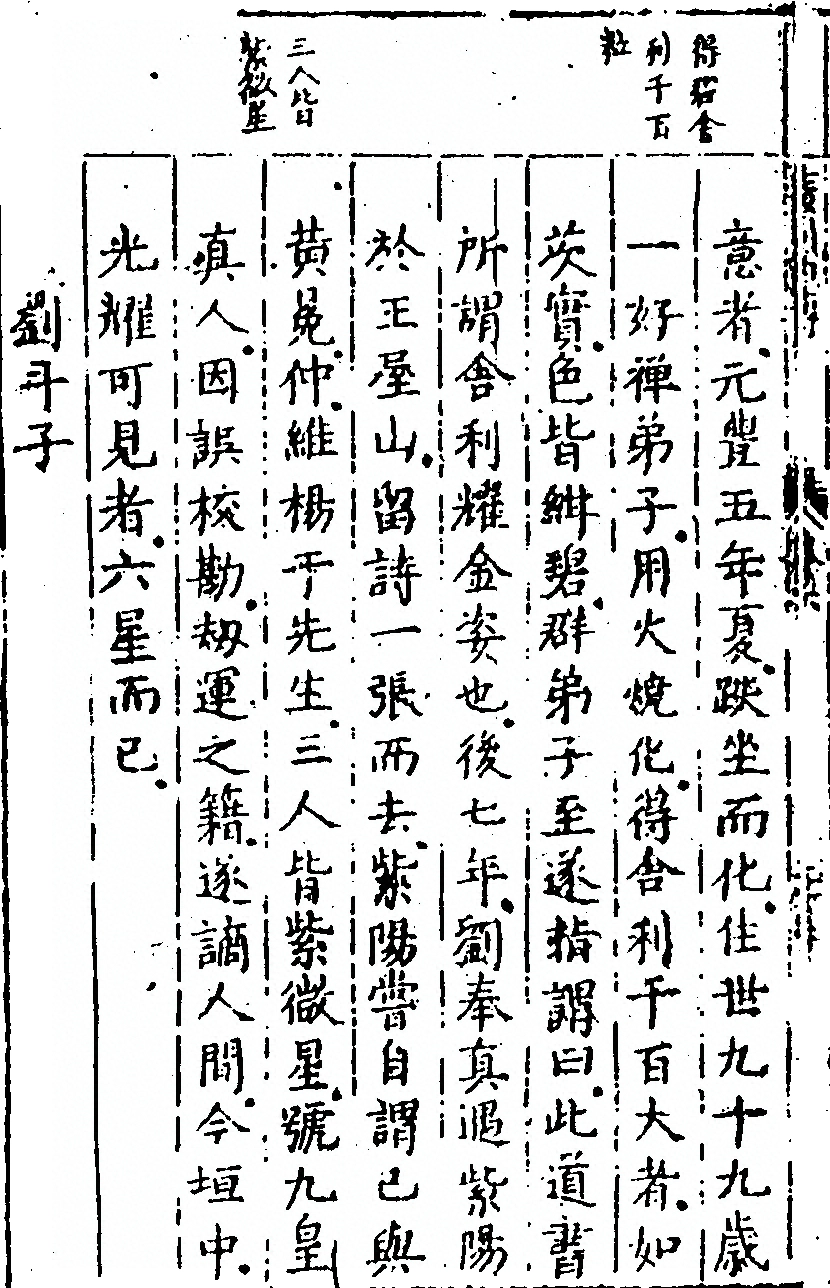 得若舍
利千百
粒
三人皆
紫微星
意者元豐五年夏趺坐而化住世九十九歲
一好禅弟子用火燒化得舍利千百大者如
芡實色皆紺碧群弟子至遂指謂曰此道書
所謂舍利耀金姿也後七年劉奉真遇紫陽
於王屋山留詩一張而去紫陽嘗自謂已與
黃冕仲維楊于先生三人皆紫微星號九皇
真人因誤校勘刼運之籍遂謫人間今垣中
光耀可見者六星而已
劉斗子